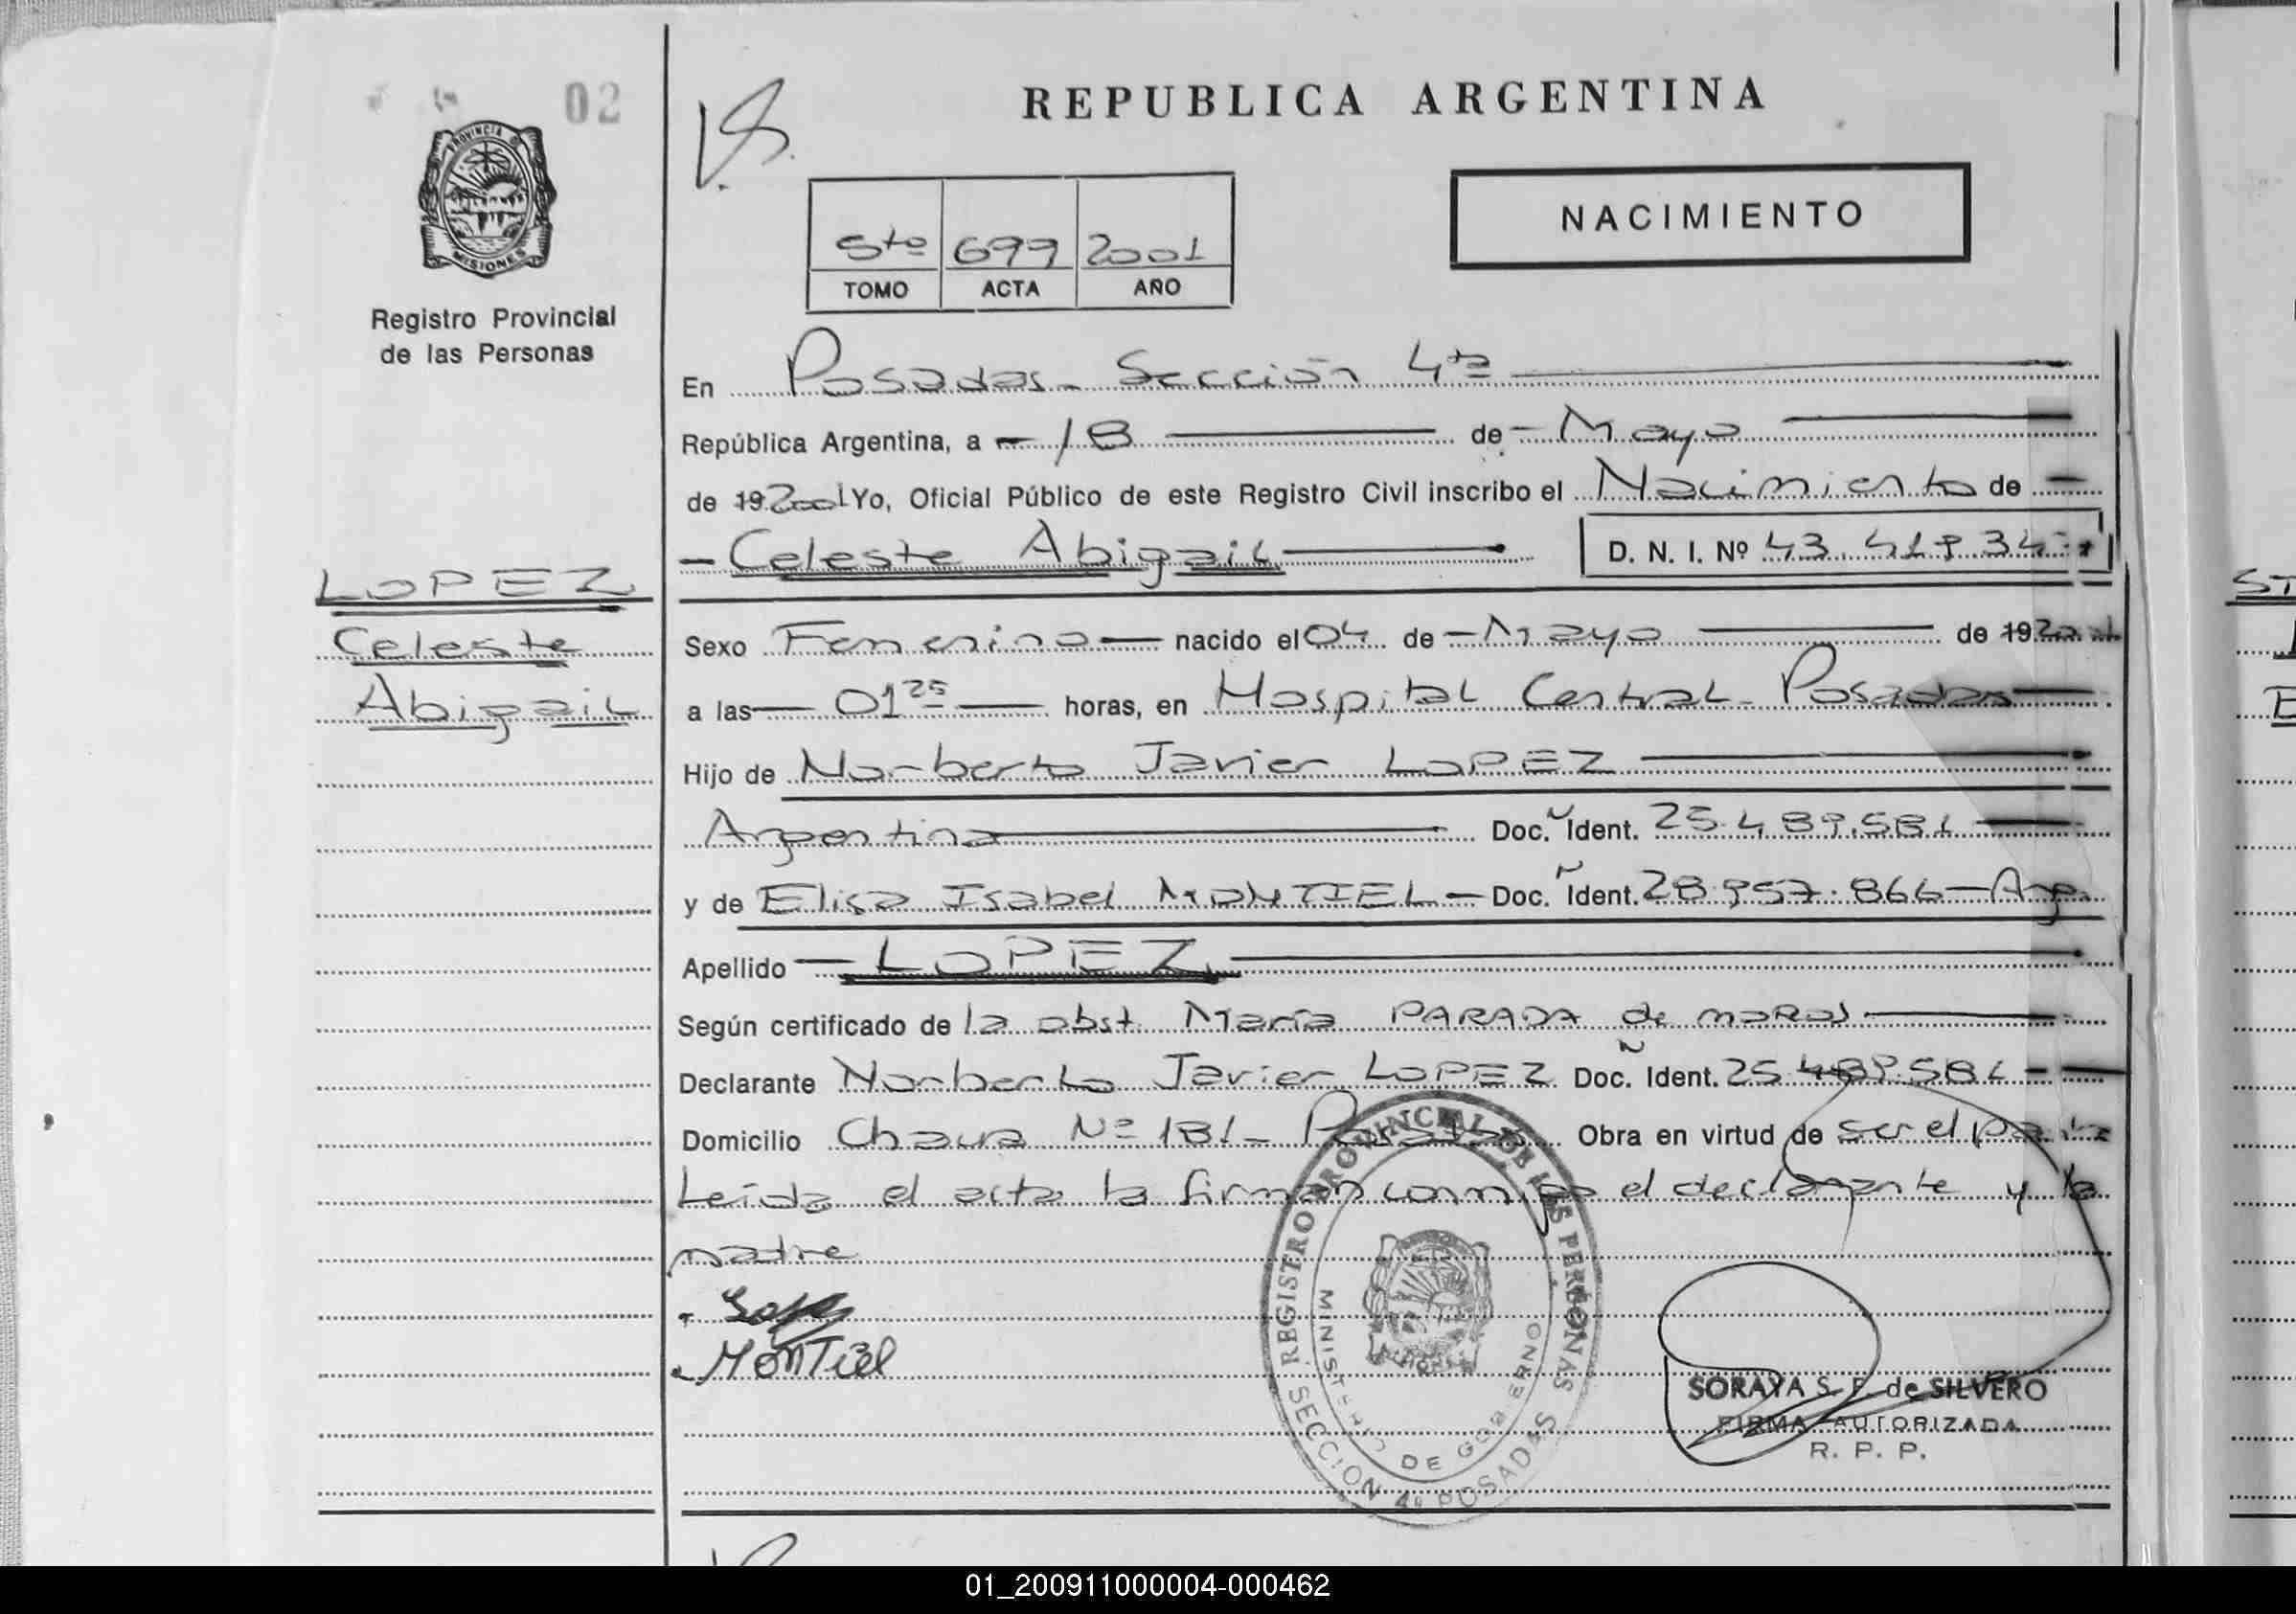 02
PROVINCIA D
MISIONES
Registro Provincial
de las Personas
LOPEZ
Celeste
Abigail
REPUBLICA ARGENTINA
NACIMIENTO
5to 699 2001
TOMO ACTA AÑO
En Posadas - Sección 4ta
República Argentina, a - 18 de - Mayo
de 19 2001 Yo, Oficial Público de este Registro Civil inscribo el Nacimiento de -
- Celeste Abigail D. N. I. Nº 43.419.34
Sexo Femenino - nacido el 04 de - Mayo de 19 2001
a las - 01 25 - horas, en Hospital Central - Posadas
Hijo de Norberto Javier LOPEZ
Argentino Doc. Ident. 25.489.581
y de Elisa Isabel MONTIEL - Doc. Ident. 28.957.866 - Arg.
Apellido - LOPEZ
Según certificado de la obst. María PARADA de
Declarante Norberto Javier LOPEZ Doc. Ident. 25.489.581 -
Domicilio Nº 181 - Posadas Obra en virtud de ser el padre
Leída el acta la firman conmigo el declarante y la
madre
MONTiEl
REGISTRO PROVINCIAL DE LAS PERSONAS
MINISTERIO DE GOBIERNO
SECCION 4º POSADAS
SORAYA S. F. de SILVERO
FIRMA AUTORIZADA
R. P. P.
ST
E
01_200911000004-000462